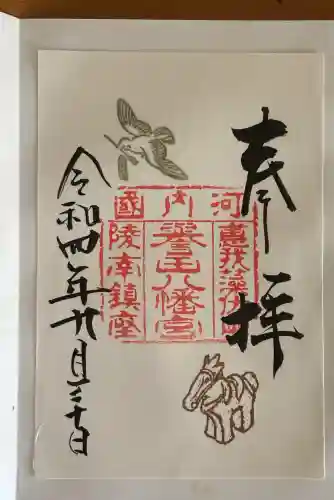 奉拝
河内國
惠我藻伏崗
譽田八幡宮
陵南鎮座
令和四年九月三十日